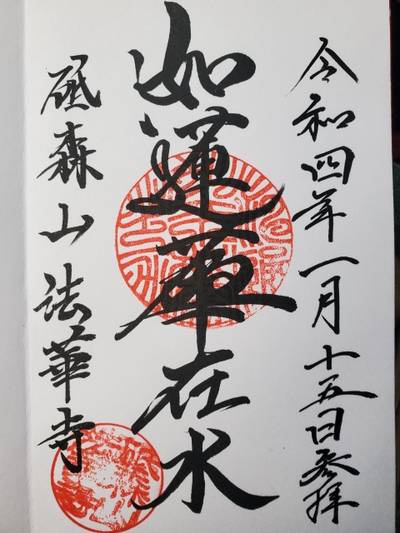 令和四年一月十五日参拝
如蓮華在水
砥森山法華寺